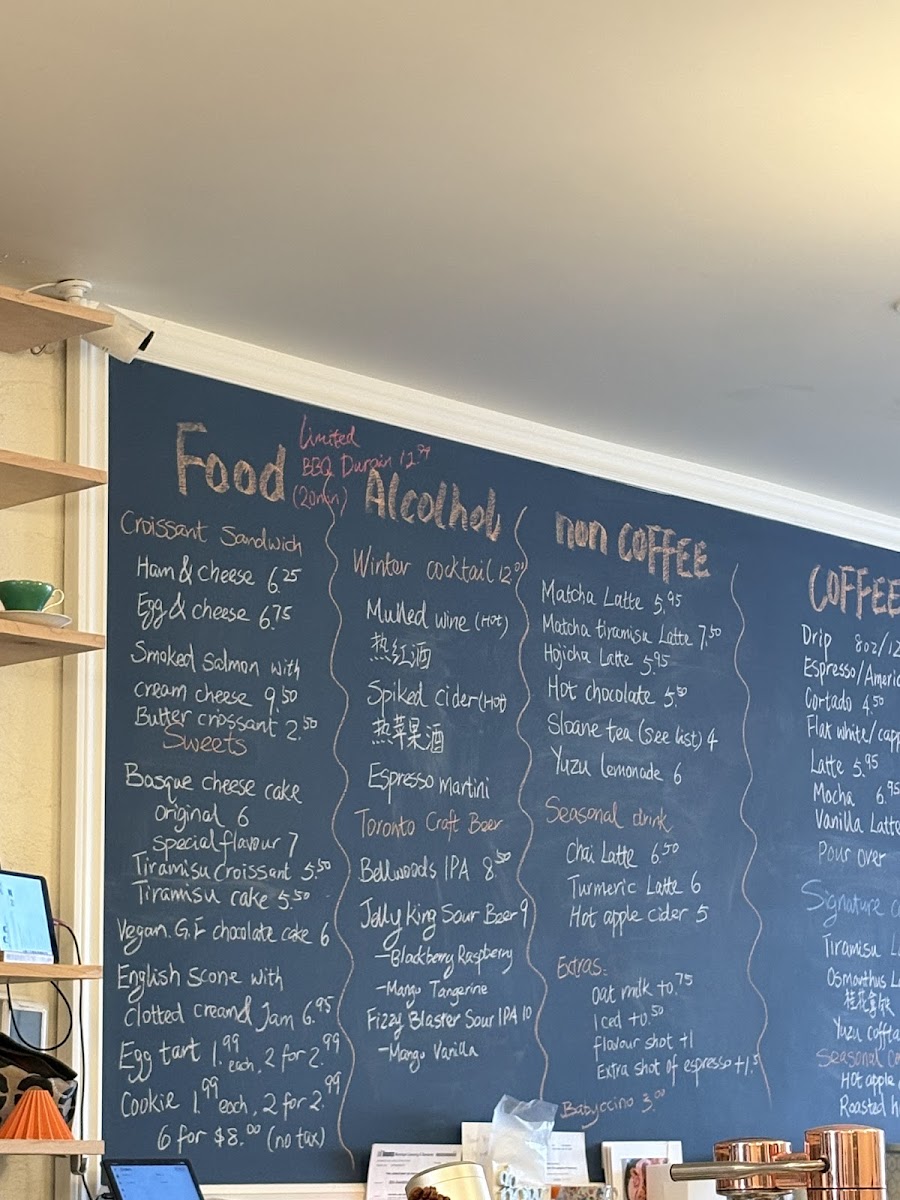 Food
Limited
BBQ Durain 12.99
(20min)
Croissant Sandwich
Ham & cheese 6.25
Egg & cheese 6.75
Smoked Salmon with
cream cheese 9.50
Butter crossant 2.50
Sweets
Basque cheese cake
original 6
special flavour 7
Tiramisu croissant 5.50
Tiramisu cake 5.50
Vegan. G.F chocolate cake 6
English Scone with
clotted cream and Jam 6.95
Egg tart 1.99 each, 2 for 2.99
Cookie 1.99 each, 2 for 2.99
6 for $8.00 (no tax)
Alcolhol
Winter cocktail 12.00
Mulled wine (Hot)
热红酒
Spiked cider (Hot)
热苹果酒
Espresso martini
Toronto Craft Beer
Bellwoods IPA 8.50
Jelly King Sour Beer 9
-Blackberry Raspberry
-Mango Tangerine
Fizzy Blaster Sour IPA 10
-Mango Vanilla
non COFFEE
Matcha Latte 5.95
Matcha tiramisu Latte 7.50
Hojicha Latte 5.95
Hot chocolate 5.50
Sloane tea (see list) 4
Yuzu lemonade 6
Seasonal drink
Chai Latte 6.50
Turmeric Latte 6
Hot apple cider 5
Extras:
Oat milk +0.75
Iced +0.50
flavour shot +1
Extra shot of espresso +1.5
Babyccino 3.00
COFFEE
Drip 8oz/12
Espresso/Americ
Cortado 4.50
Flat white/capp
Latte 5.95
Mocha 6.95
Vanilla Latte
Pour over
Signature
Tiramisu L
Osmanthus L
桂花拿铁
Yuzu coffta
Seasonal Co
Hot apple
Roasted h